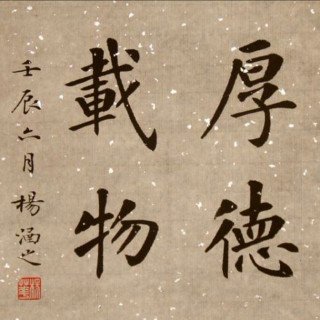 厚德
載物
壬辰六月楊涵之